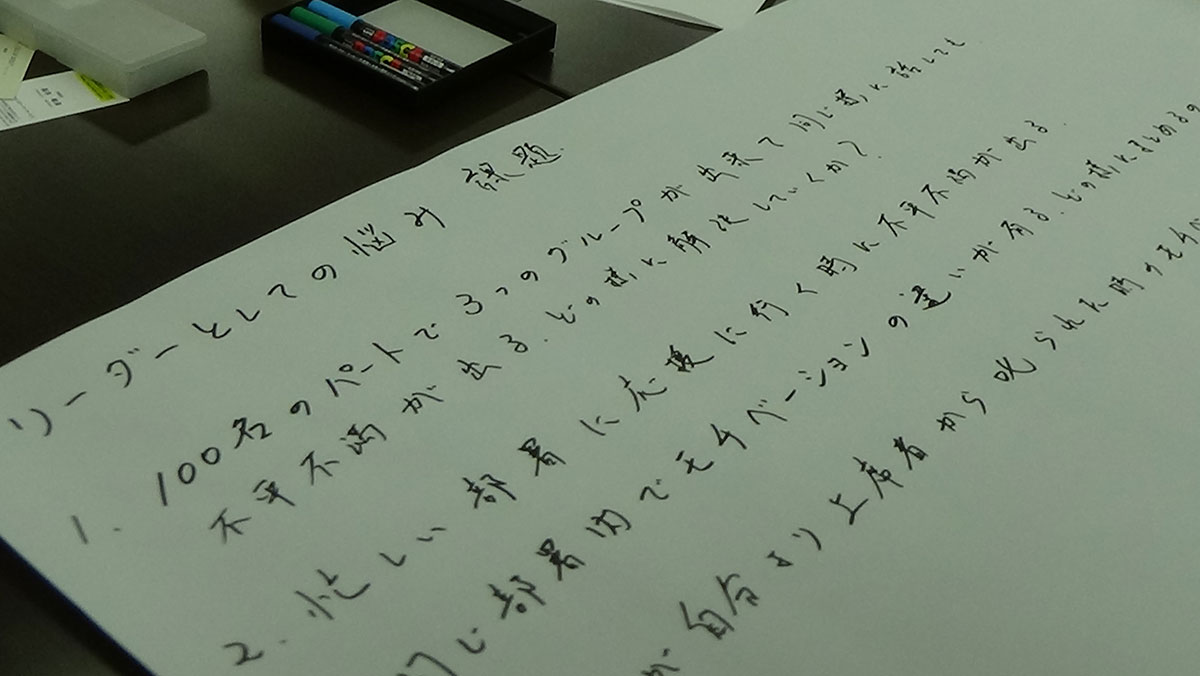 リーダーとしての悩み 課題
1. 100名のパートで3つのグループが出来て同じ様に話しても
不平不満が出る.どの様に解決していくか?
2. 忙しい部署に応援に行く時に不平不満が出る.
同じ部署内でモチベーションの違いが有る.どの様にまとめるの
が自分より上席者から叱られた時のモチベ